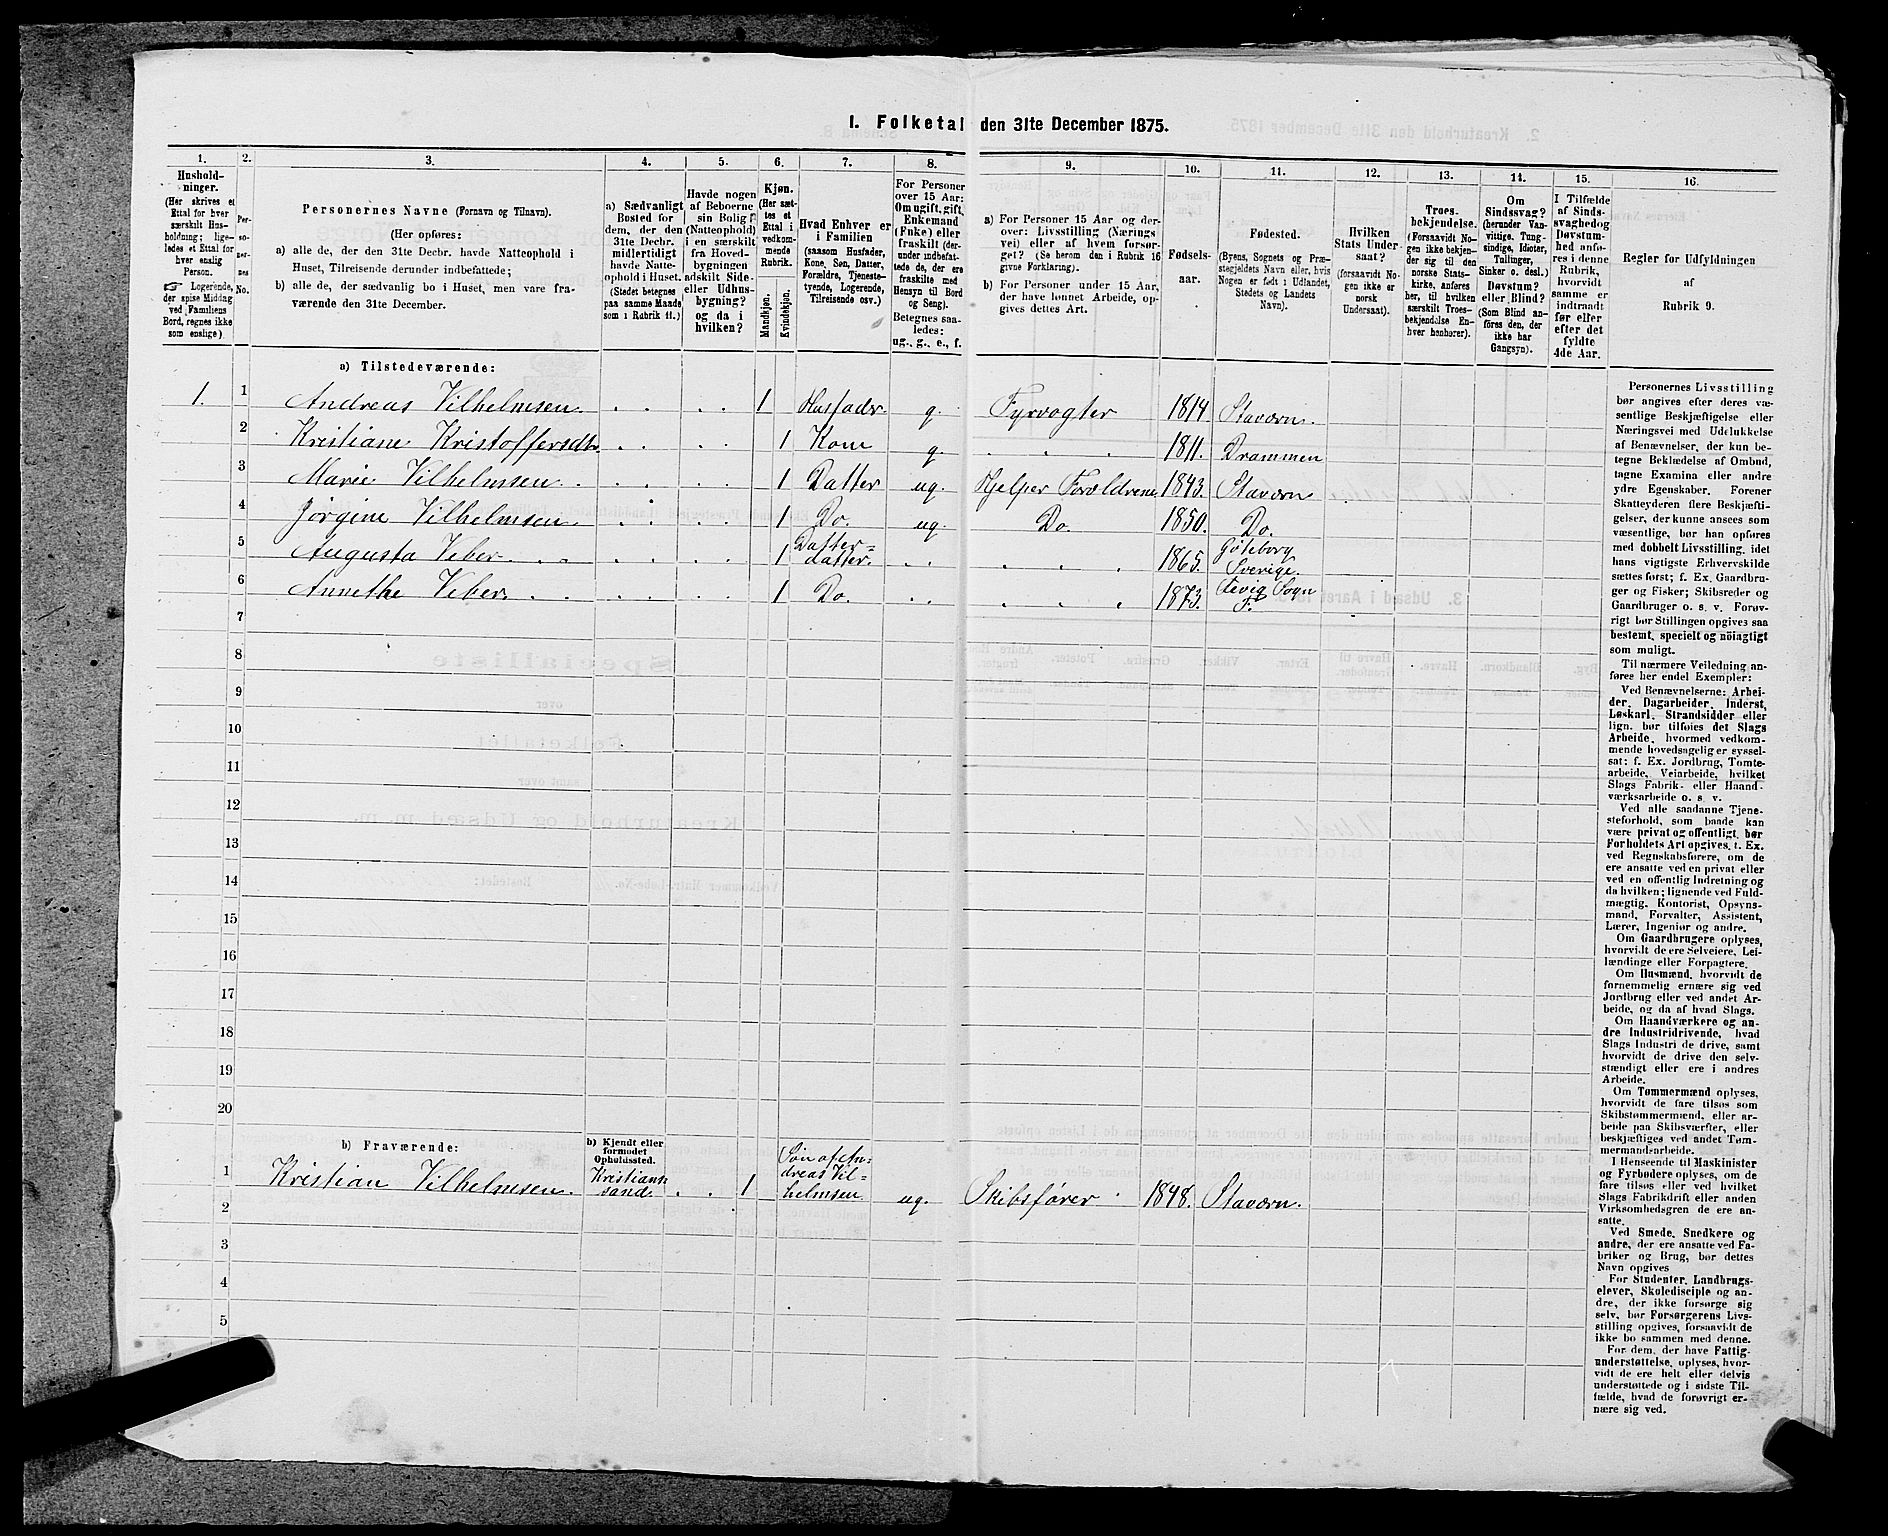 I. Folketal den 31te December 1875.
1. 2. 3. 4. 5. 6. 7. 8. 9. 10. 11. 12. 13. 14. 15. 16.
Hushold-
ninger.
(Her skrives et
Ettal for hver
særskilt Hus-
holdning; lige-
ledes et Ettal for
hver enslig
Person.
☞ Logerende,
der spise Middag
ved Familiens
Bord, regnes ikke
som enslige).
Per-
so-
ner-
nes
No.
Personernes Navne (Fornavn og Tilnavn).
(Her opføres:
a) alle de, der den 31te Decbr. havde Natteophold i
Huset, Tilreisende derunder indbefattede;
b) alle de, der sædvanlig bo i Huset, men vare fra-
værende den 31te December.
a) Sædvanligt
Bosted for
dem, der den
31te Decbr.
midlertidigt
havde Natte-
ophold i Huset.
(Stedet betegnes
paa samme Maade
som i Rubrik 11.)
Havde nogen
af Beboerne
sin Bolig
(Natteophold)
i en særskilt
fra Hoved-
bygningen
adskilt Side-
eller Udhus-
bygning?
og da i
hvilken?
Kjøn.
(Her sæt-
tes et
Ettal i
vedkom-
mende
Rubrik.
Mandkjøn.
Kvindekjøn.
Hvad Enhver er
i Familien
(saasom Husfader,
Kone, Søn, Datter,
Forældre, Tjeneste-
tyende, Logerende,
Tilreisende osv.)
For Personer
over 15 Aar:
Om ugift, gift,
Enkemand
(Enke) eller
fraskilt (der-
under indbefat-
tede de, der ere
fraskilte med
Hensyn til Bord
og Seng).
Betegnes saa-
ledes:
ug., g., e., f.
a) For Personer 15 Aar og der-
over: Livsstilling (Nærings-
vei) eller af hvem forsør-
get? (Se herom den i Rubrik 16
givne Forklaring).
b) For Personer under 15 Aar,
der have lønnet Arbeide, op-
gives dettes Art.
Fødsels-
aar.
Fødested.
(Byens, Sognets og Præ-
stegjeldets Navn eller, hvis
Nogen er født i Udlandet,
Stedets og Landets
Navn).
Hvilken
Stats Under-
saat?
(forsaavidt No-
gen ikke er
norsk
Undersaat).
Troes-
bekjendelse.
(Forsaavidt No-
gen ikke bekjen-
der sig til den
norske Stats-
kirke, anføres
her, til hvilken
særskilt Troes-
bekjendelse En-
hver henhører).
Om
Sindssvag?
(herunder Van-
vittige, Tung-
sindige, Idioter,
Tullinger,
Sinker o. desl.)
Døvstum?
eller Blind?
(Som Blind an-
føres den, der
ikke har
Gangsyn).
I Tilfælde
af Sinds-
svaghed og
Døvstum-
hed anfø-
res i denne
Rubrik,
hvorvidt
samme er
indtraadt
før eller
efter det
fyldte
4de Aar.
Regler for Udfyldningen
af
Rubrik 9.
a) Tilstedeværende:
1. 1 Andreas Vilhelmsen. 1 Husfader g. Fyrvogter 1814. Staværn.
2 Kristiane Kristoffersdtr. 1 Kone g. 1811. Drammen
3 Marie Vilhelmsen 1 Datter ug. Hjelper Forældrene 1843. Staværn
4 Jørgine Vilhelmsen 1 Do. ug. Do. 1850. Do.
5 Augusta Veber 1 Datter=datter. 1865. Göteborg Sverige.
6 Annethe Veber. 1 Do. 1873. Sogn
7
8
9
10
11
12
13
14
15
16
17
18
19
20
b) Fraværende:
b) Kjendt eller
formodet
Opholdssted.
1 Kristian Vilhelmsen Kristianssand. 1 Søn af Andreas Vilhelmsen ug. Skibsfører 1848. Staværn.
2
3
4
5
Personernes Livsstilling
bør angives efter deres væ-
sentlige Beskjæftigelse eller
Næringsvei med Udelukkelse
af Benævnelser, der kun be-
tegne Beklædelse af Ombud,
tagne Examina eller andre
ydre Egenskaber. Forener
Skatteyderen flere Beskjæfti-
gelser, der kunne ansees som
væsentlige, bør han opføres
med dobbelt Livsstilling, idet
hans vigtigste Erhvervskilde
sættes først; f. Ex. Gaardbru-
ger og Fisker; Skibsreder og
Gaardbruger o. s. v. Forøv-
rigt bør Stillingen opgives saa
bestemt, specielt og nöiagtigt
som muligt.
Til nærmere Veiledning an-
føres her endel Exempler:
Ved Benævnelserne: Arbei-
der, Dagarbeider, Inderst,
Løskarl, Strandsidder eller
lign. bør tilføies det Slags
Arbeide, hvormed vedkom-
mende hovedsagelig er syssel-
sat: f. Ex. Jordbrug, Tomte-
arbeide, Veiarbeide, hvilket
Slags Fabrik- eller Haand-
værksarbeide o. s. v.
Ved alle saadanne Tjene-
steforhold, som baade kan
være privat og offentligt, bør
Forholdets Art opgives, t. Ex.
ved Regnskabsførere, om de
ere ansatte ved en privat eller
ved en offentlig Indretning og
da hvilken; lignende ved Fuld-
mægtig, Kontorist, Opsyns-
mand, Forvalter, Assistent,
Lærer, Ingeniør og andre.
Om Gaardbrugere oplyses,
hvorvidt de ere Selveiere, Lei-
lændinge eller Forpagtere.
Om Husmænd, hvorvidt de
fornemmelig ernære sig ved
Jordbrug eller ved andet Ar-
beide, og da af hvad Slags.
Om Haandværkere og an-
dre Industridrivende, hvad
Slags Industri de drive, samt
hvorvidt de drive den selv-
stændigt eller ere i andres
Arbeide.
Om Tømmermænd oplyses,
hvorvidt de fare tilsøs som
Skibstømmermænd, eller ar-
beide paa Skibsværfter, eller
beskjæftiges ved andet Tøm-
mermandarbeide.
I Henseende til Maskinister
og Fyrbødere oplyses, om de
fare tilsøs eller ved hvilket
Slags Fabrikdrift eller anden
Virksomhedsgren de ere an-
satte.
Ved Smede, Snedkere og
andre, der ere ansatte ved Fa-
briker og Brug, bør dettes
Navn opgives
For Studenter, Landbrugs-
elever, Skoledisciple og an-
dre, der ikke forsørge sig
selv, bør Forsørgerens Livs-
stilling opgives, forsaavidt de
ikke bo sammen med denne.
For dem, der have Fattig-
understøttelse, oplyses, hvor-
vidt de ere helt eller delvis
understøttede og i sidste Til-
fælde, hvad de forøvrigt er-
nære sig ved.